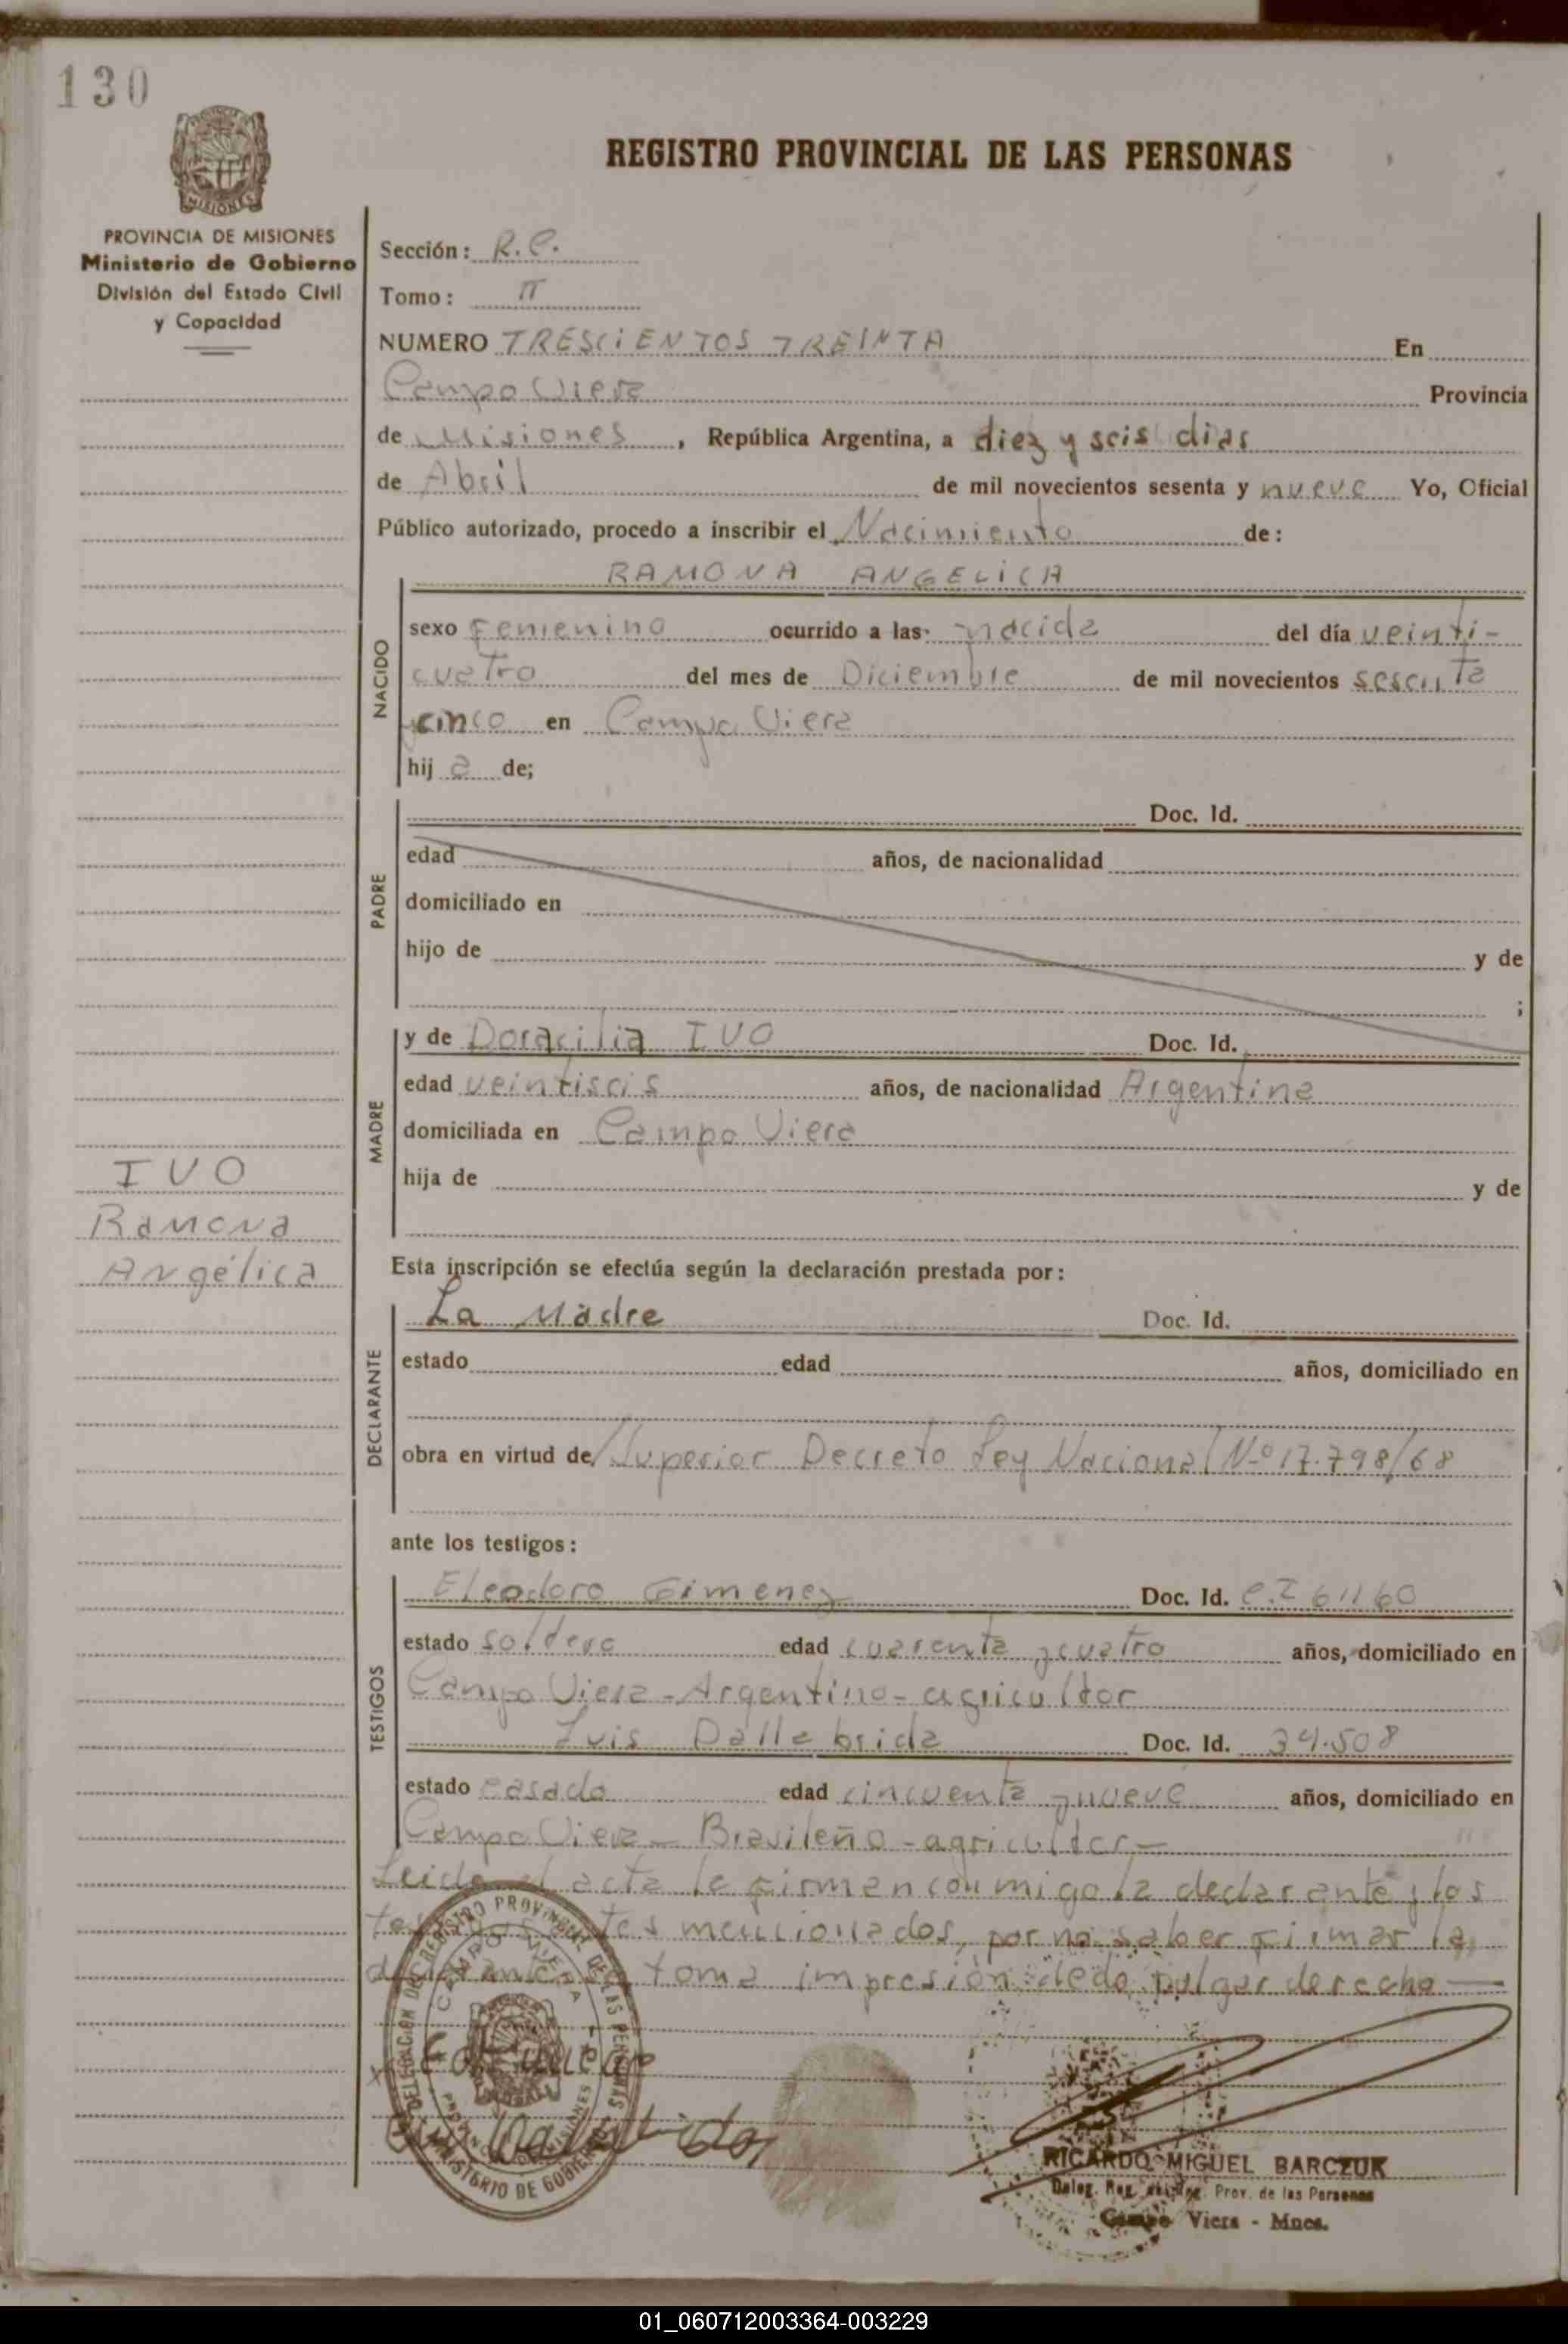 130
MISIONES
PROVINCIA DE MISIONES
Ministerio de Gobierno
División del Estado Civil
y Capacidad
REGISTRO PROVINCIAL DE LAS PERSONAS
Sección: R.C.
Tomo: II
NUMERO TRESCIENTOS TREINTA En
Campo Viera Provincia
de Misiones, República Argentina, a diez y seis dias
de Abril de mil novecientos sesenta y nueve Yo, Oficial
Público autorizado, procedo a inscribir el Nacimiento de:
RAMONA ANGELICA
NACIDO
sexo Femenino ocurrido a las nacida del día veinti-
cuatro del mes de Diciembre de mil novecientos sesenta
y cinco en Campo Viera
hija de;
PADRE
Doc. Id.
edad años, de nacionalidad
domiciliado en
hijo de y de
;
MADRE
y de Doracilia IVO Doc. Id.
edad veintiseis años, de nacionalidad Argentina
domiciliada en Campo Viera
hija de y de
IVO
Ramona
Angélica
Esta inscripción se efectúa según la declaración prestada por:
DECLARANTE
La Madre Doc. Id.
estado edad años, domiciliado en
obra en virtud de Superior Decreto Ley Nacional Nº 17.798/68
ante los testigos:
TESTIGOS
Eleodoro Gimenez Doc. Id. C.I 61160
estado soltero edad cuarenta y cuatro años, domiciliado en
Campo Viera - Argentino - agricultor
Luis Dalla brida Doc. Id. 34.508
estado casado edad cincuenta y nueve años, domiciliado en
Campo Viera - Brasileño - agricultor -
Leida el acta la firman conmigo la declarante y los
mencionados, por no saber firmar la
declarante toma impresión dedo pulgar derecho —
DELEGACION DEL REGISTRO PROVINCIAL DE LAS PERSONAS
CAMPO VIERA
PROVINCIA MISIONES
MINISTERIO DE GOBIERNO
RICARDO MIGUEL BARCZUK
Deleg. Reg. Prov. de las Personas
Campo Viera - Mnes.
01_060712003364-003229